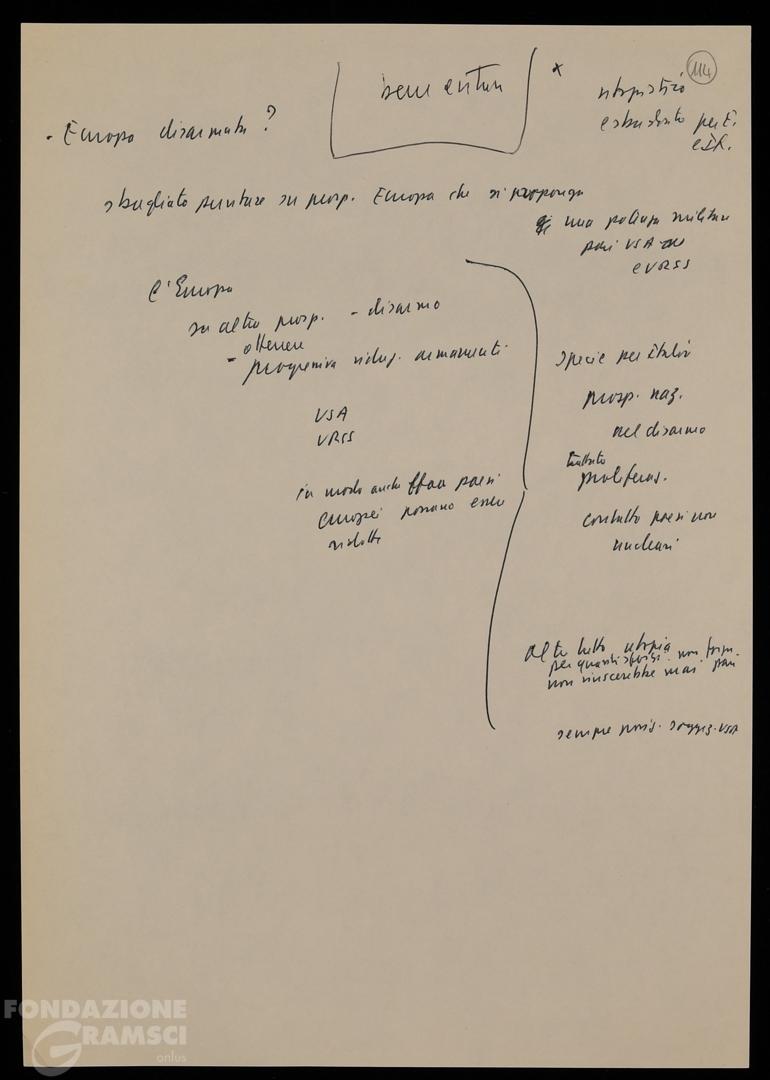 114
utopistico
• Europa disarmata?
per E.
sbagliato puntare su prosp. Europa che si proponga
di una potenza militare
pari USA
e URSS
l'Europa
su altra prosp. - disarmo
ottenere
- progressiva riduz. armamenti
USA
URSS
in modo anche paesi
europei possano essere
ridotte
specie per Italia
prosp. naz.
nel disarmo
trattato
proliferaz.
contatto paesi non
nucleari
oltre tutto utopia
per quanti sforzi
non riuscerebbe mai pari
sempre soggez. USA
FONDAZIONE
GRAMSCI
onlus